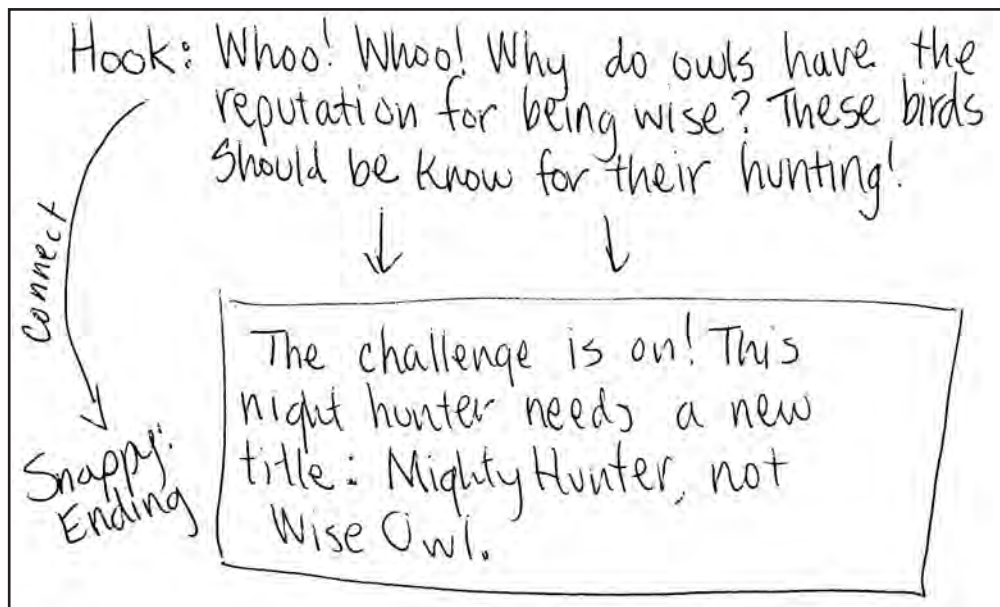 Hook: Whoo! Whoo! Why do owls have the
reputation for being wise? These birds
should be know for their hunting!
connect
The challenge is on! This
night hunter needs a new
title: Mighty Hunter, not
Wise Owl.
Snappy:
Ending